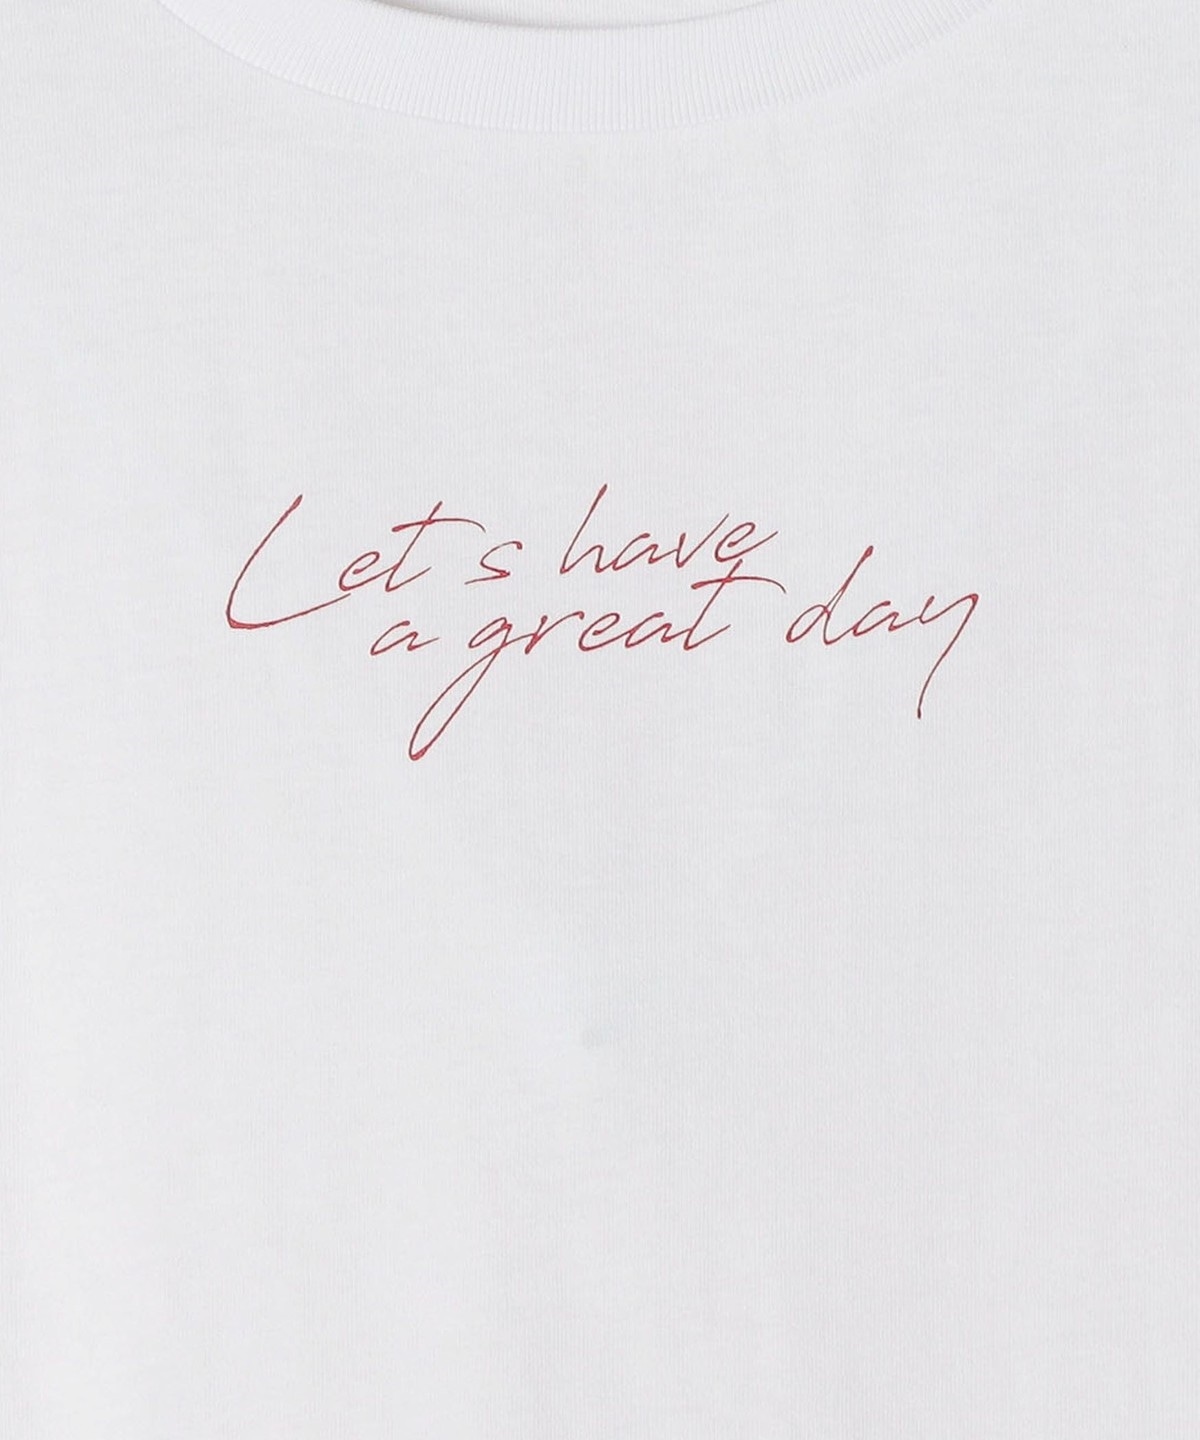 Let's have
a great day